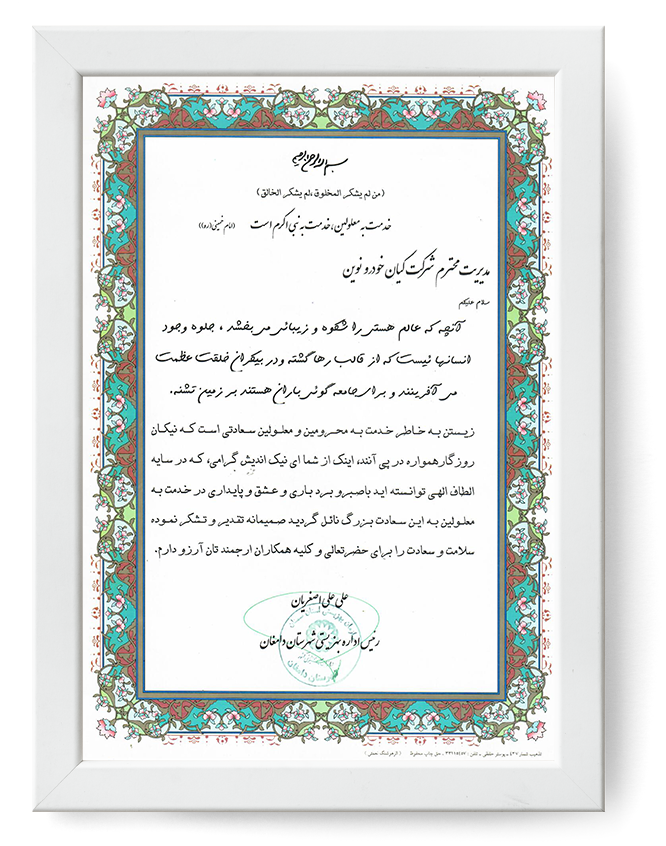 بسم الله الرحمن الرحیم
(من لم یشکر المخلوق ،لم یشکر الخالق)
خدمت به معلولین، خدمت به نبی اکرم است (امام خمینی(ره))
مدیریت محترم شرکت کیان خودرو نوین
سلام علیکم
آنچه که عالم هستی را شکوه و زیبائی می بخشد ، جلوه وجود
انسانها ئیست که از قالب رها گشته و در بیکران خلقت عظمت
می آفرینند و برای جامعه گوئی باران هستند بر زمین تشنه.
زیستن به خاطر خدمت به محرومین و معلولین سعادتی است که نیکان
روزگار همواره در پی آنند، اینک از شما ای نیک اندیش گرامی، که در سایه
الطاف الهی توانسته اید باصبر و برد باری و عشق و پایداری در خدمت به
معلولین به این سعادت بزرگ نائل گردید صمیمانه تقدیر و تشکر نموده
سلامت و سعادت را برای حضرتعالی و کلیه همکاران ارجمند تان آرزو دارم.
علی علی اصغریان
رئیس اداره بهزیستی شهرستان دامغان